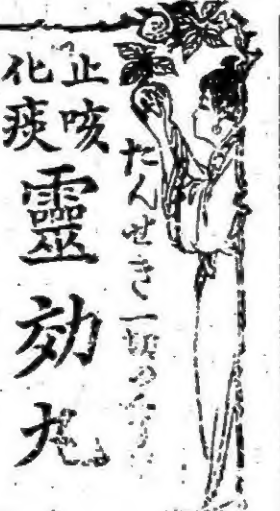 たんせき一切の
止咳
化痰
靈効丸